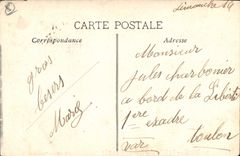 Dimanche 14
CARTE POSTALE
Correspondance
Adresse
gros
bisers
Marie
Monsieur
Jules charbonier
a bord de la Liberté
1ere escadre
toulon
var